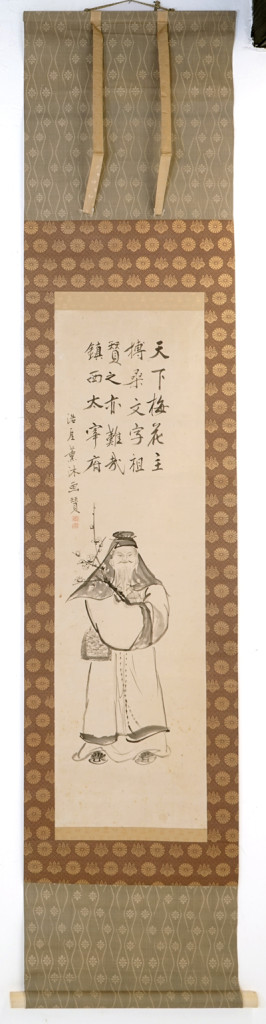 天下梅花主
搏桑文字祖
賛之亦難哉
鎮西太宰府
薫沐画賛